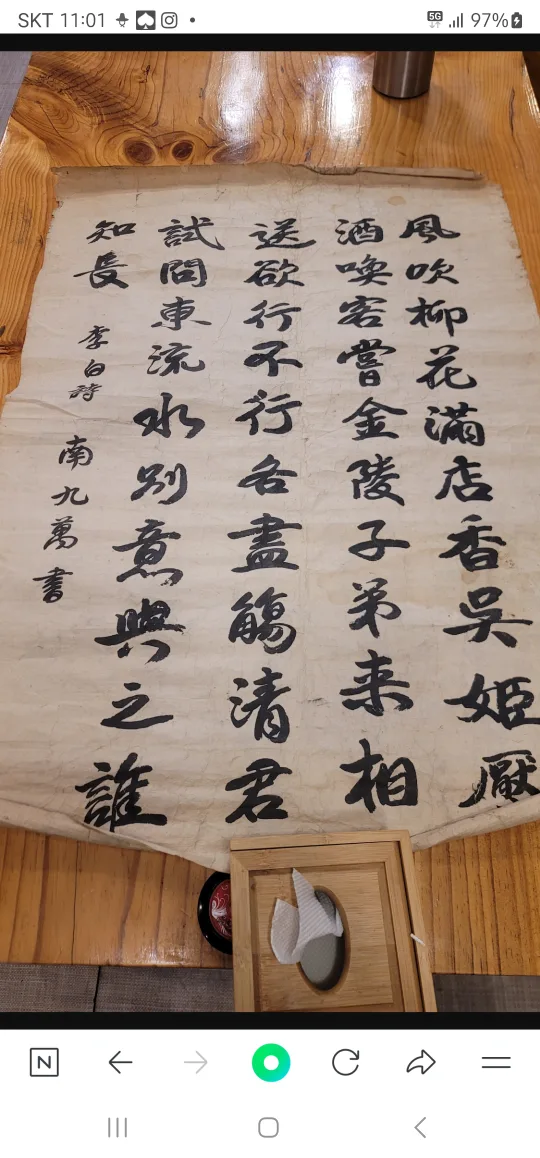 SKT 11:01
5G 97%
風吹柳花滿店香吳姬厭
酒喚客嘗金陵子弟来相
送欲行不行各盡觴清君
試問東流水別意與之誰
知長
李白詩
南九萬書
N